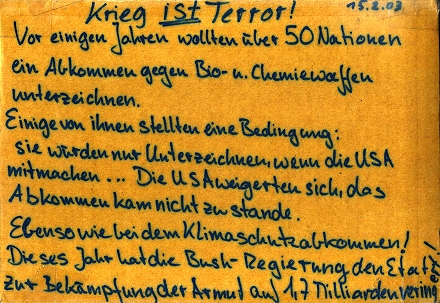 Krieg ist Terror!
15.2.03
Vor einigen Jahren wollten über 50 Nationen
ein Abkommen gegen Bio- u. Chemiewaffen
unterzeichnen.
Einige von ihnen stellten eine Bedingung:
sie würden nur Unterzeichnen, wenn die USA
mitmachen ... Die USA weigerten sich, das
Abkommen kam nicht zu stande.
Ebenso wie bei dem Klimaschutzabkommen!
Dieses Jahr hat die Bush-Regierung den Etat
zur Bekämpfung der Armut auf 1,7 Milliarden